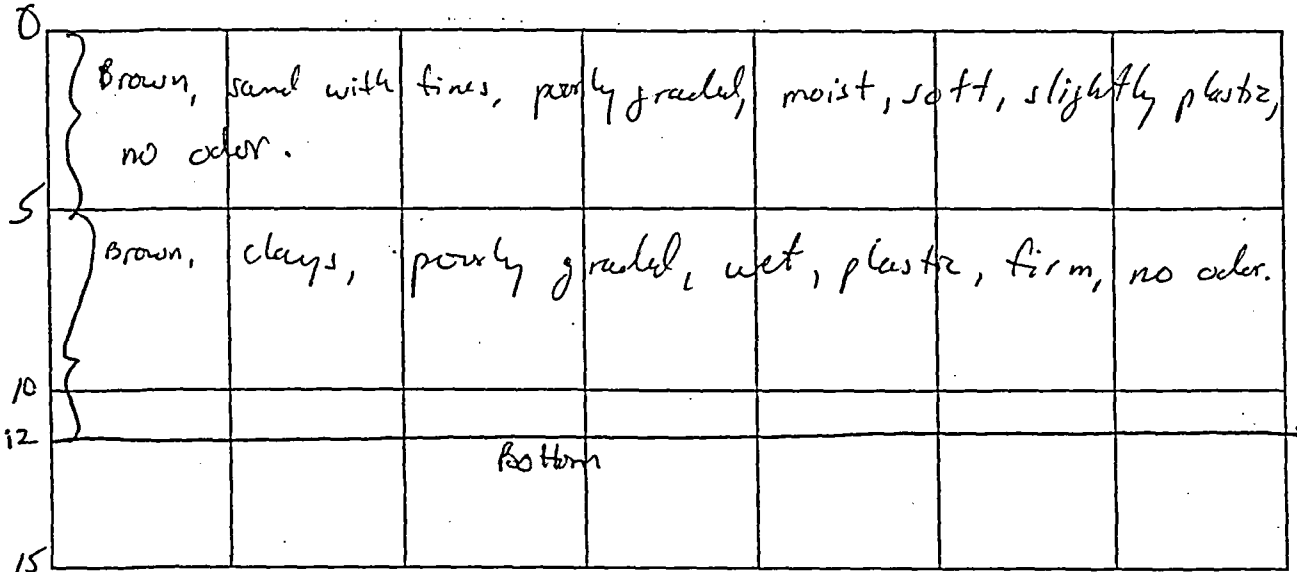 0
Brown, sand with fines, poorly graded, moist, soft, slightly plastic,
no odor.
5
Brown, clays, poorly graded, wet, plastic, firm, no odor.
10
12
Bottom
15